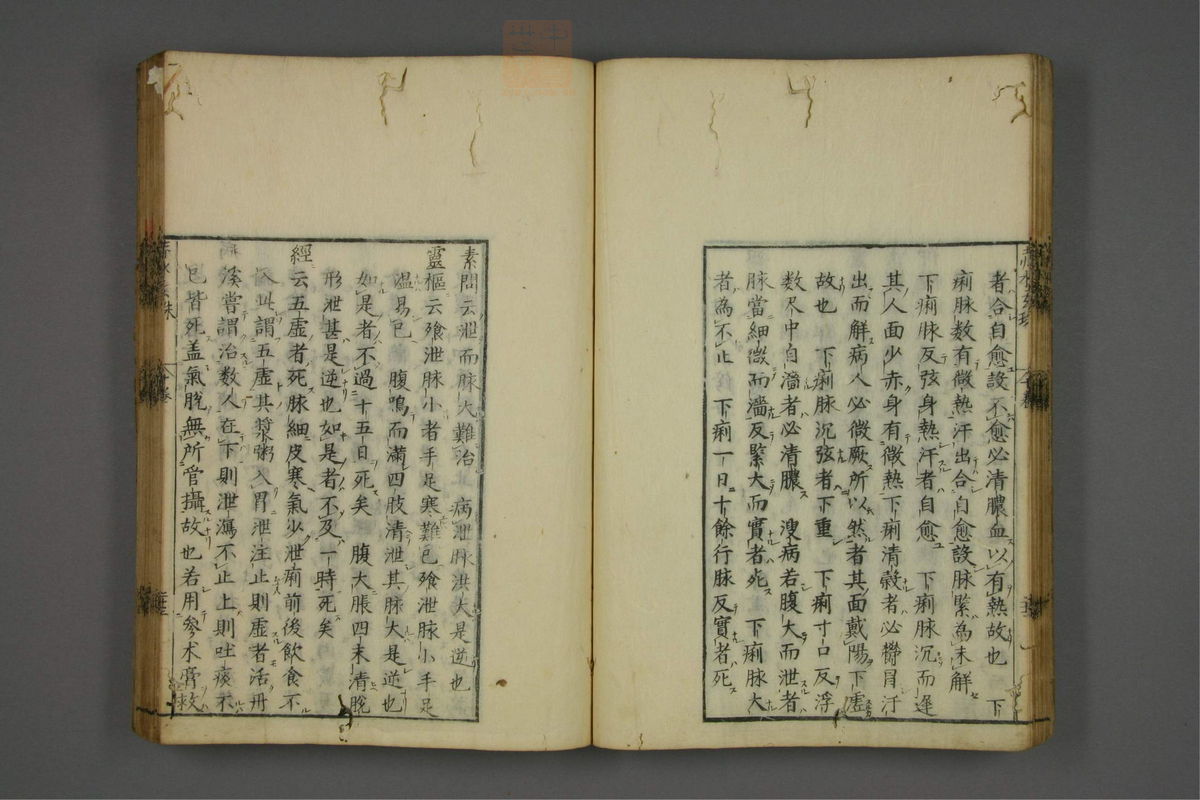 者合自愈設不愈必清膿血以有熱故也　下
痢脉数有微熱汗出合自愈設脉緊為未解
下痢脉反弦身熱汗者自愈　下痢脉沉而遲
其人面少赤身有微熱下痢清穀者必欝冒汗
出而解病人必微厥所以然者其面戴陽下虛
故也　下痢脉沉弦者下重　下痢寸口反浮
数尺中自濇者必清膿　溲病若腹大而泄者
脉當細微而濇反緊大而實者死　下痢脉大
者為不止　下痢一日十餘行脉反實者死
素問云泄而脉大難治　病泄脉洪大是逆也
靈樞云飱泄脉小者手足寒難已飱泄脉小手足
温易已　腹鳴而滿四肢清泄其脉大是逆也
如是者不過十五日死矣　腹大脹四末清脫
形泄甚是逆也如是者不及一時死矣
經云五虛者死脉細皮寒氣少泄痢前後飲食不
入此謂五虛其漿粥入胃泄注止則虛者活丹
溪嘗謂治数人在下則泄瀉不止上則吐痰不
已皆死盖氣脫無所管攝故也若用參术膏救